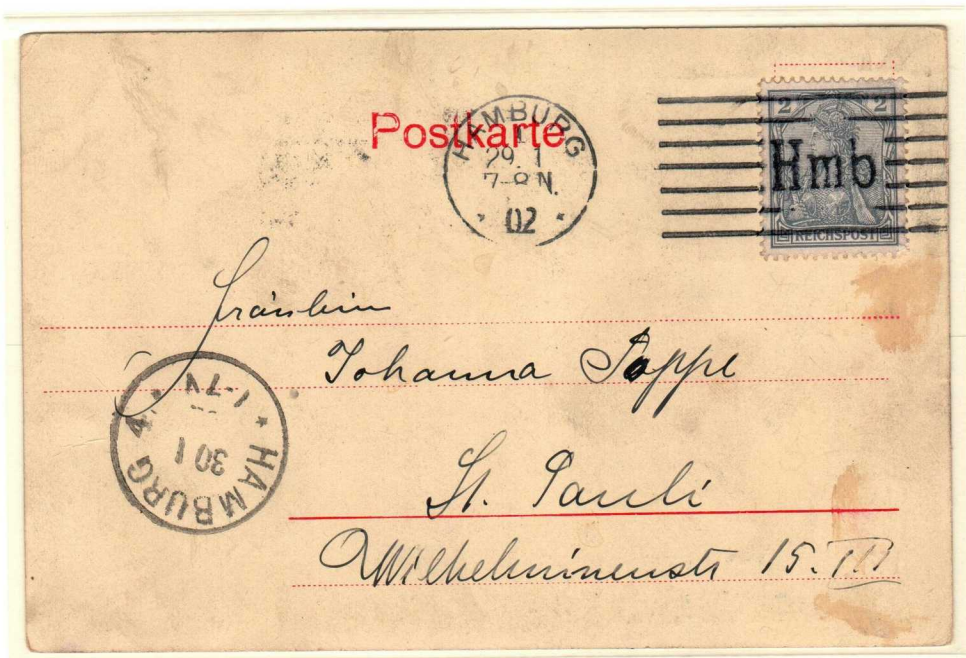 Postkarte
HAMBURG
1
29.1
7-8 N.
* 02 *
2 2
Hmb
REICHSPOST
Fräulein
Johanna Poppe
St. Pauli
Wilhelminenstr 15. III
* HAMBURG 4. *
30 1
1-7V